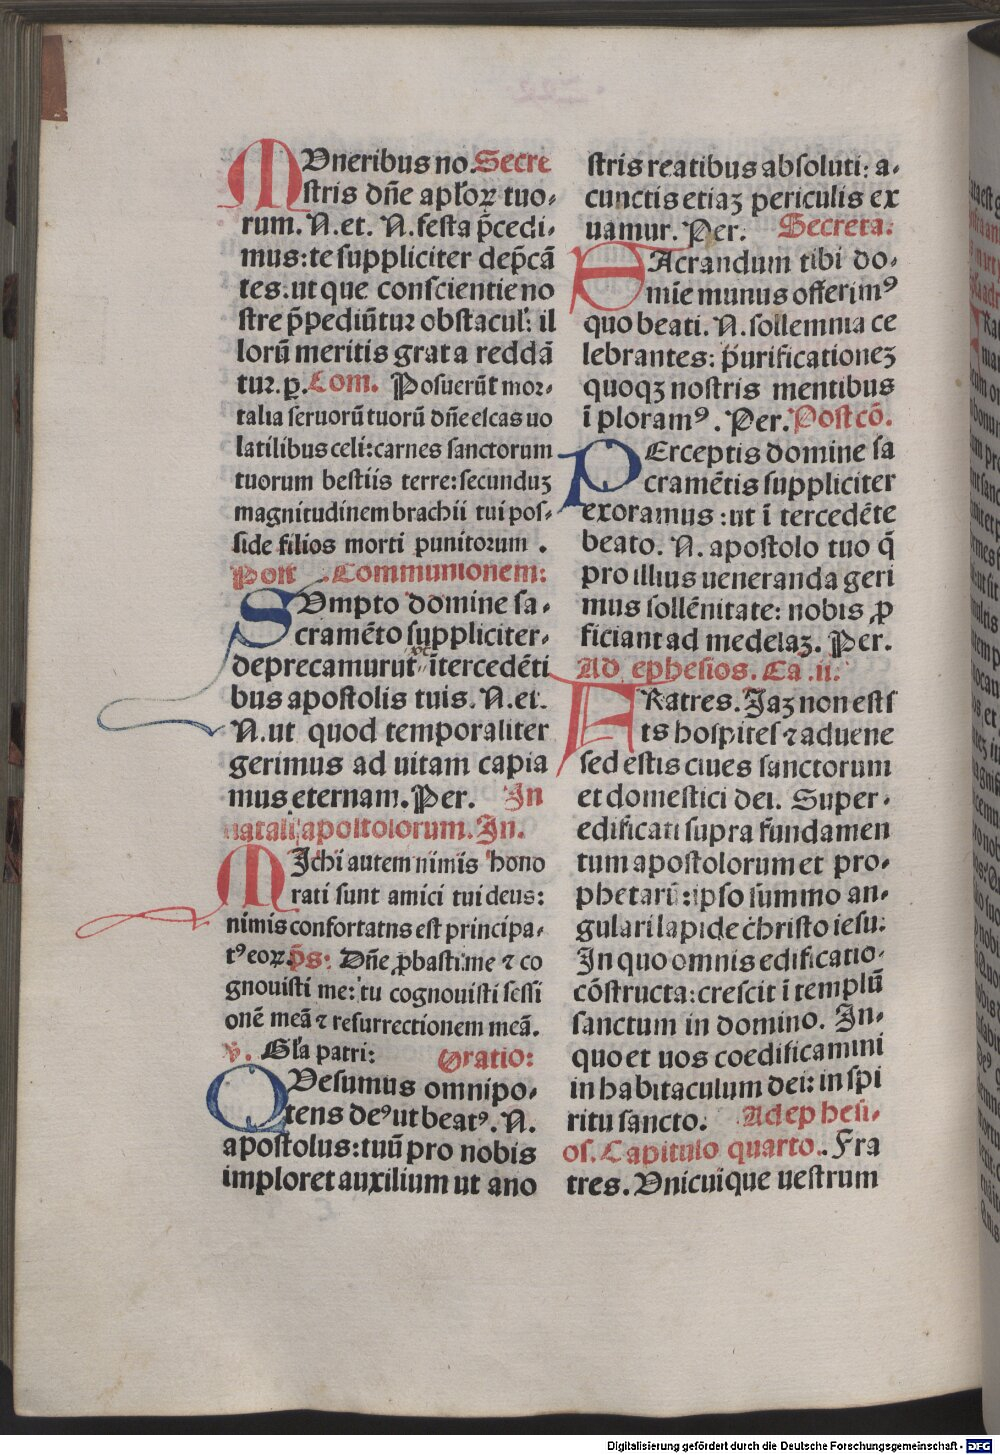 MVneribus no. Secre
stris dn̄e apl̓oꝝ tuo-
rum. N. et. N. festa p̄cedi-
mus: te suppliciter dep̄cā
tes. ut que conscientie no
stre p̄pediūtur obstacul̓: il
lorū meritis grata reddā
tur. ꝑ. Com. Posuerūt mor-
talia seruorū tuorū dn̄e escas uo
latilibus celi: carnes sanctorum
tuorum bestiis terre: secunduꝫ
magnitudinem brachii tui pos-
side filios morti punitorum.
Post Communionem:
SVmpto domine sa-
cramēto suppliciter-
deprecamur ut ītercedēti
bus apostolis tuis. N. et.
N. ut quod temporaliter
gerimus ad uitam capia
mus eternam. Per. In
natali apostolorum. In.
MIchi autem nimis hono
rati sunt amici tui deus:
nimis confortatns est principa-
tꝰ eoꝝ. p̄s: Dn̄e ꝓbasti me ⁊ co
gnouisti me: tu cognouisti sessi
onē meā ⁊ resurrectionem meā.
V. Gl̓a patri: Oratio:
QVesumus omnipo-
tens deꝰ ut beatꝰ. N.
apostolus: tuū pro nobis
imploret auxilium ut a no
stris reatibus absoluti: a-
cunctis etiaꝫ periculis ex
uamur. Per. Secreta.
SAcrandum tibi do-
mīe munus offerimꝰ
quo beati. N. sollemnia ce
lebrantes: purificationeꝫ
quoqꝫ nostris mentibus
īploramꝰ. Per. Postcō.
PErceptis domine sa
cramētis suppliciter
exoramus: ut ītercedēte
beato. N. apostolo tuo q̄
pro illius ueneranda geri
mus sollēnitate: nobis ꝓ
ficiant ad medelaꝫ. Per.
Ad ephesios. Ca. ii.
FRatres. Jaꝫ non esti
tis hospites ⁊ aduene
sed estis ciues sanctorum
et domestici dei. Super-
edificati supra fundamen
tum apostolorum et pro-
phetarū: ipso summo an-
gulari lapide christo iesu.
In quo omnis edificatio-
cōstructa: crescit ī templū
sanctum in domino. In-
quo et uos coedificamini
in habitaculum dei: in spi
ritu sancto. Ad ephesi-
os. Capitulo quarto. Fra
tres. Vnicuique uestrum
Digitalisierung gefördert durch die Deutsche Forschungsgemeinschaft - DFG